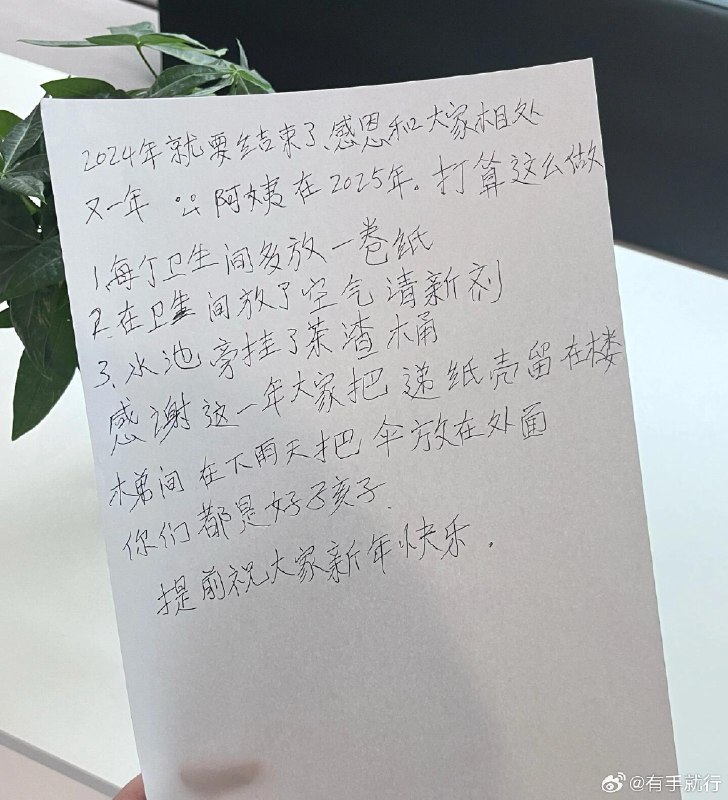 2024年就要结束了、感恩和大家相处
又一年 阿姨在2025年。打算这么做
1、每个卫生间多放一卷纸
2、在卫生间放了空气清新剂
3、水池旁挂了菜渣桶
感谢这一年大家把递纸壳留在楼
梯间在下雨天把伞放在外面
你们都是好孩子.
提前祝大家新年快乐.
@有手就行